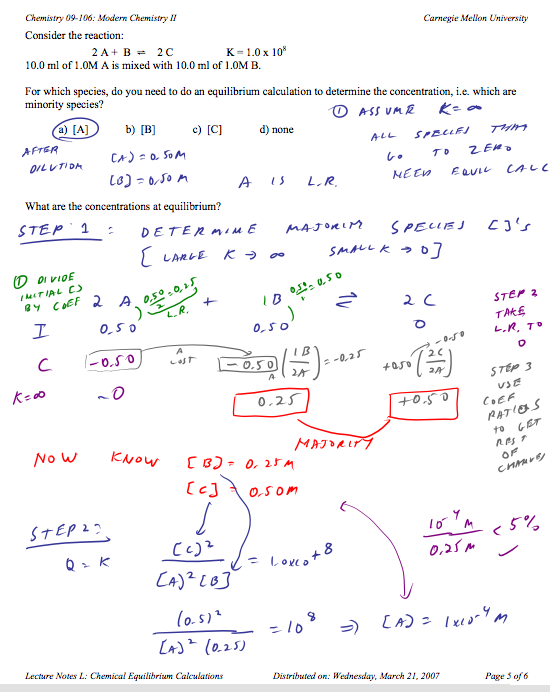 Chemistry 09-106: Modern Chemistry II Carnegie Mellon University
Consider the reaction:
2 A + B ⇌ 2 C K = 1.0 x 10⁸
10.0 ml of 1.0M A is mixed with 10.0 ml of 1.0M B.
For which species, do you need to do an equilibrium calculation to determine the concentration, i.e. which are
minority species?
① ASSUME K = ∞
a) [A] b) [B] c) [C] d) none
ALL SPECIES THAT
GO TO ZERO
NEED EQUIL CALC
AFTER
DILUTION
[A] = 0.50M
[B] = 0.50 M
A IS L.R.
What are the concentrations at equilibrium?
STEP 1 : DETERMINE MAJORITY SPECIES []'S
[ LARGE K → ∞ SMALL K → 0 ]
① DIVIDE
INITIAL []
BY COEF
2 A ) 0.50/2 = 0.25 L.R. + 1 B ) 0.50/1 = 0.50 ⇌ 2 C
I 0.50 0.50 0
C -0.50 A LOST -0.50 A (1B/2A) = -0.25 +0.50 (2C/2A) -0.50
K=∞ ~0 0.25 +0.50
STEP 2
TAKE
L.R. TO
0
STEP 3
USE
COEF
RATIOS
TO GET
REST
OF
CHANGES
MAJORITY
NOW KNOW [B] = 0.25 M
[C] 0.50M
STEP 2:
Q = K
[C]²/[A]²[B] = 1.0x10+8
10⁻⁴ M/0.25 M < 5% ✓
(0.5)²/[A]² (0.25) = 10⁸ ⇒ [A] = 1x10⁻⁴ M
Lecture Notes L: Chemical Equilibrium Calculations Distributed on: Wednesday, March 21, 2007 Page 5 of 6